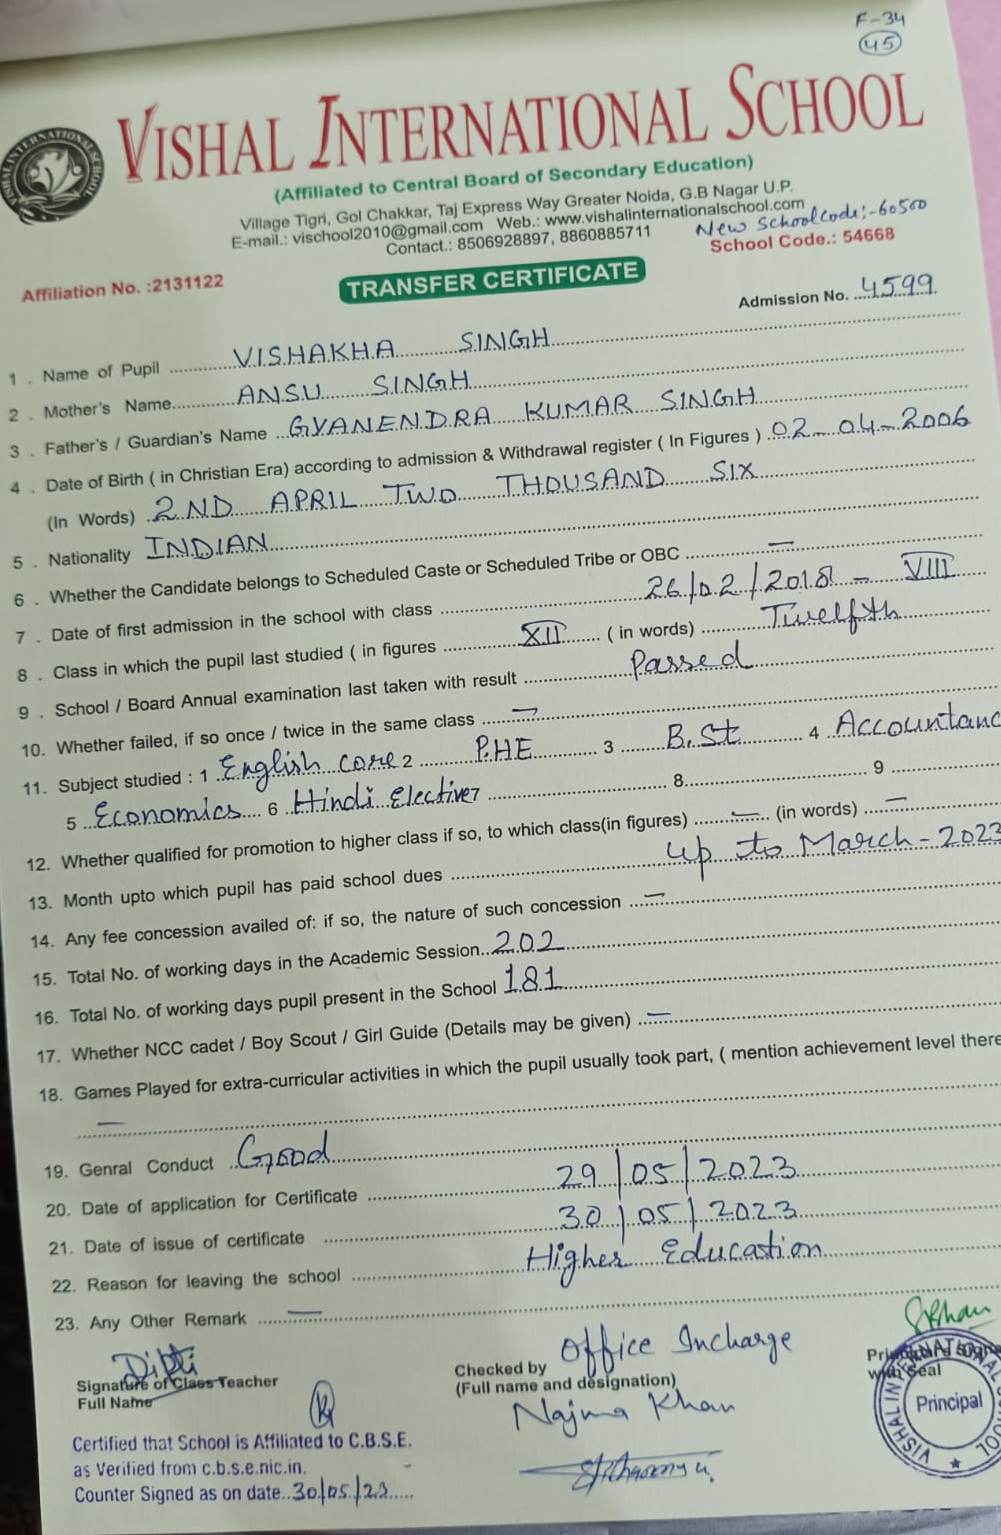 F-34
45
VISHAL INTERNATIONAL SCHOOL
(Affiliated to Central Board of Secondary Education)
Village Tigri, Gol Chakkar, Taj Express Way Greater Noida, G.B Nagar U.P.
E-mail.: vischool2010@gmail.com Web.: www.vishalinternationalschool.com
Contact.: 8506928897, 8860885711
New School Code:-60500
School Code.: 54668
Affiliation No. :2131122
TRANSFER CERTIFICATE
Admission No. 4599
1 . Name of Pupil VISHAKHA SINGH
2 . Mother's Name ANSU SINGH
3 . Father's / Guardian's Name GYANENDRA KUMAR SINGH
4 . Date of Birth ( in Christian Era) according to admission & Withdrawal register ( In Figures ) 02-04-2006
(In Words) 2ND APRIL TWO THOUSAND SIX
5 . Nationality INDIAN
6 . Whether the Candidate belongs to Scheduled Caste or Scheduled Tribe or OBC —
7 . Date of first admission in the school with class 26/02/2018 - VIII
8 . Class in which the pupil last studied ( in figures XII ( in words) Twelfth
9 . School / Board Annual examination last taken with result Passed
10. Whether failed, if so once / twice in the same class —
11. Subject studied : 1 English core 2 P.HE 3 B.St 4 Accountanc
5 Economics 6 Hindi Elective 7 8 9
12. Whether qualified for promotion to higher class if so, to which class(in figures) — (in words) —
13. Month upto which pupil has paid school dues up to March-2023
14. Any fee concession availed of: if so, the nature of such concession —
15. Total No. of working days in the Academic Session 202
16. Total No. of working days pupil present in the School 181
17. Whether NCC cadet / Boy Scout / Girl Guide (Details may be given) —
18. Games Played for extra-curricular activities in which the pupil usually took part, ( mention achievement level there
—
19. Genral Conduct Good
20. Date of application for Certificate 29/05/2023
21. Date of issue of certificate 30/05/2023
22. Reason for leaving the school Higher Education
23. Any Other Remark —
Dipti
Signature of Class Teacher
Full Name
Checked by Office Incharge
(Full name and designation)
Najma Khan
with Seal
Principal
VISHAL INTERNATIONAL
Certified that School is Affiliated to C.B.S.E.
as Verified from c.b.s.e.nic.in.
Counter Signed as on date..30/05/23